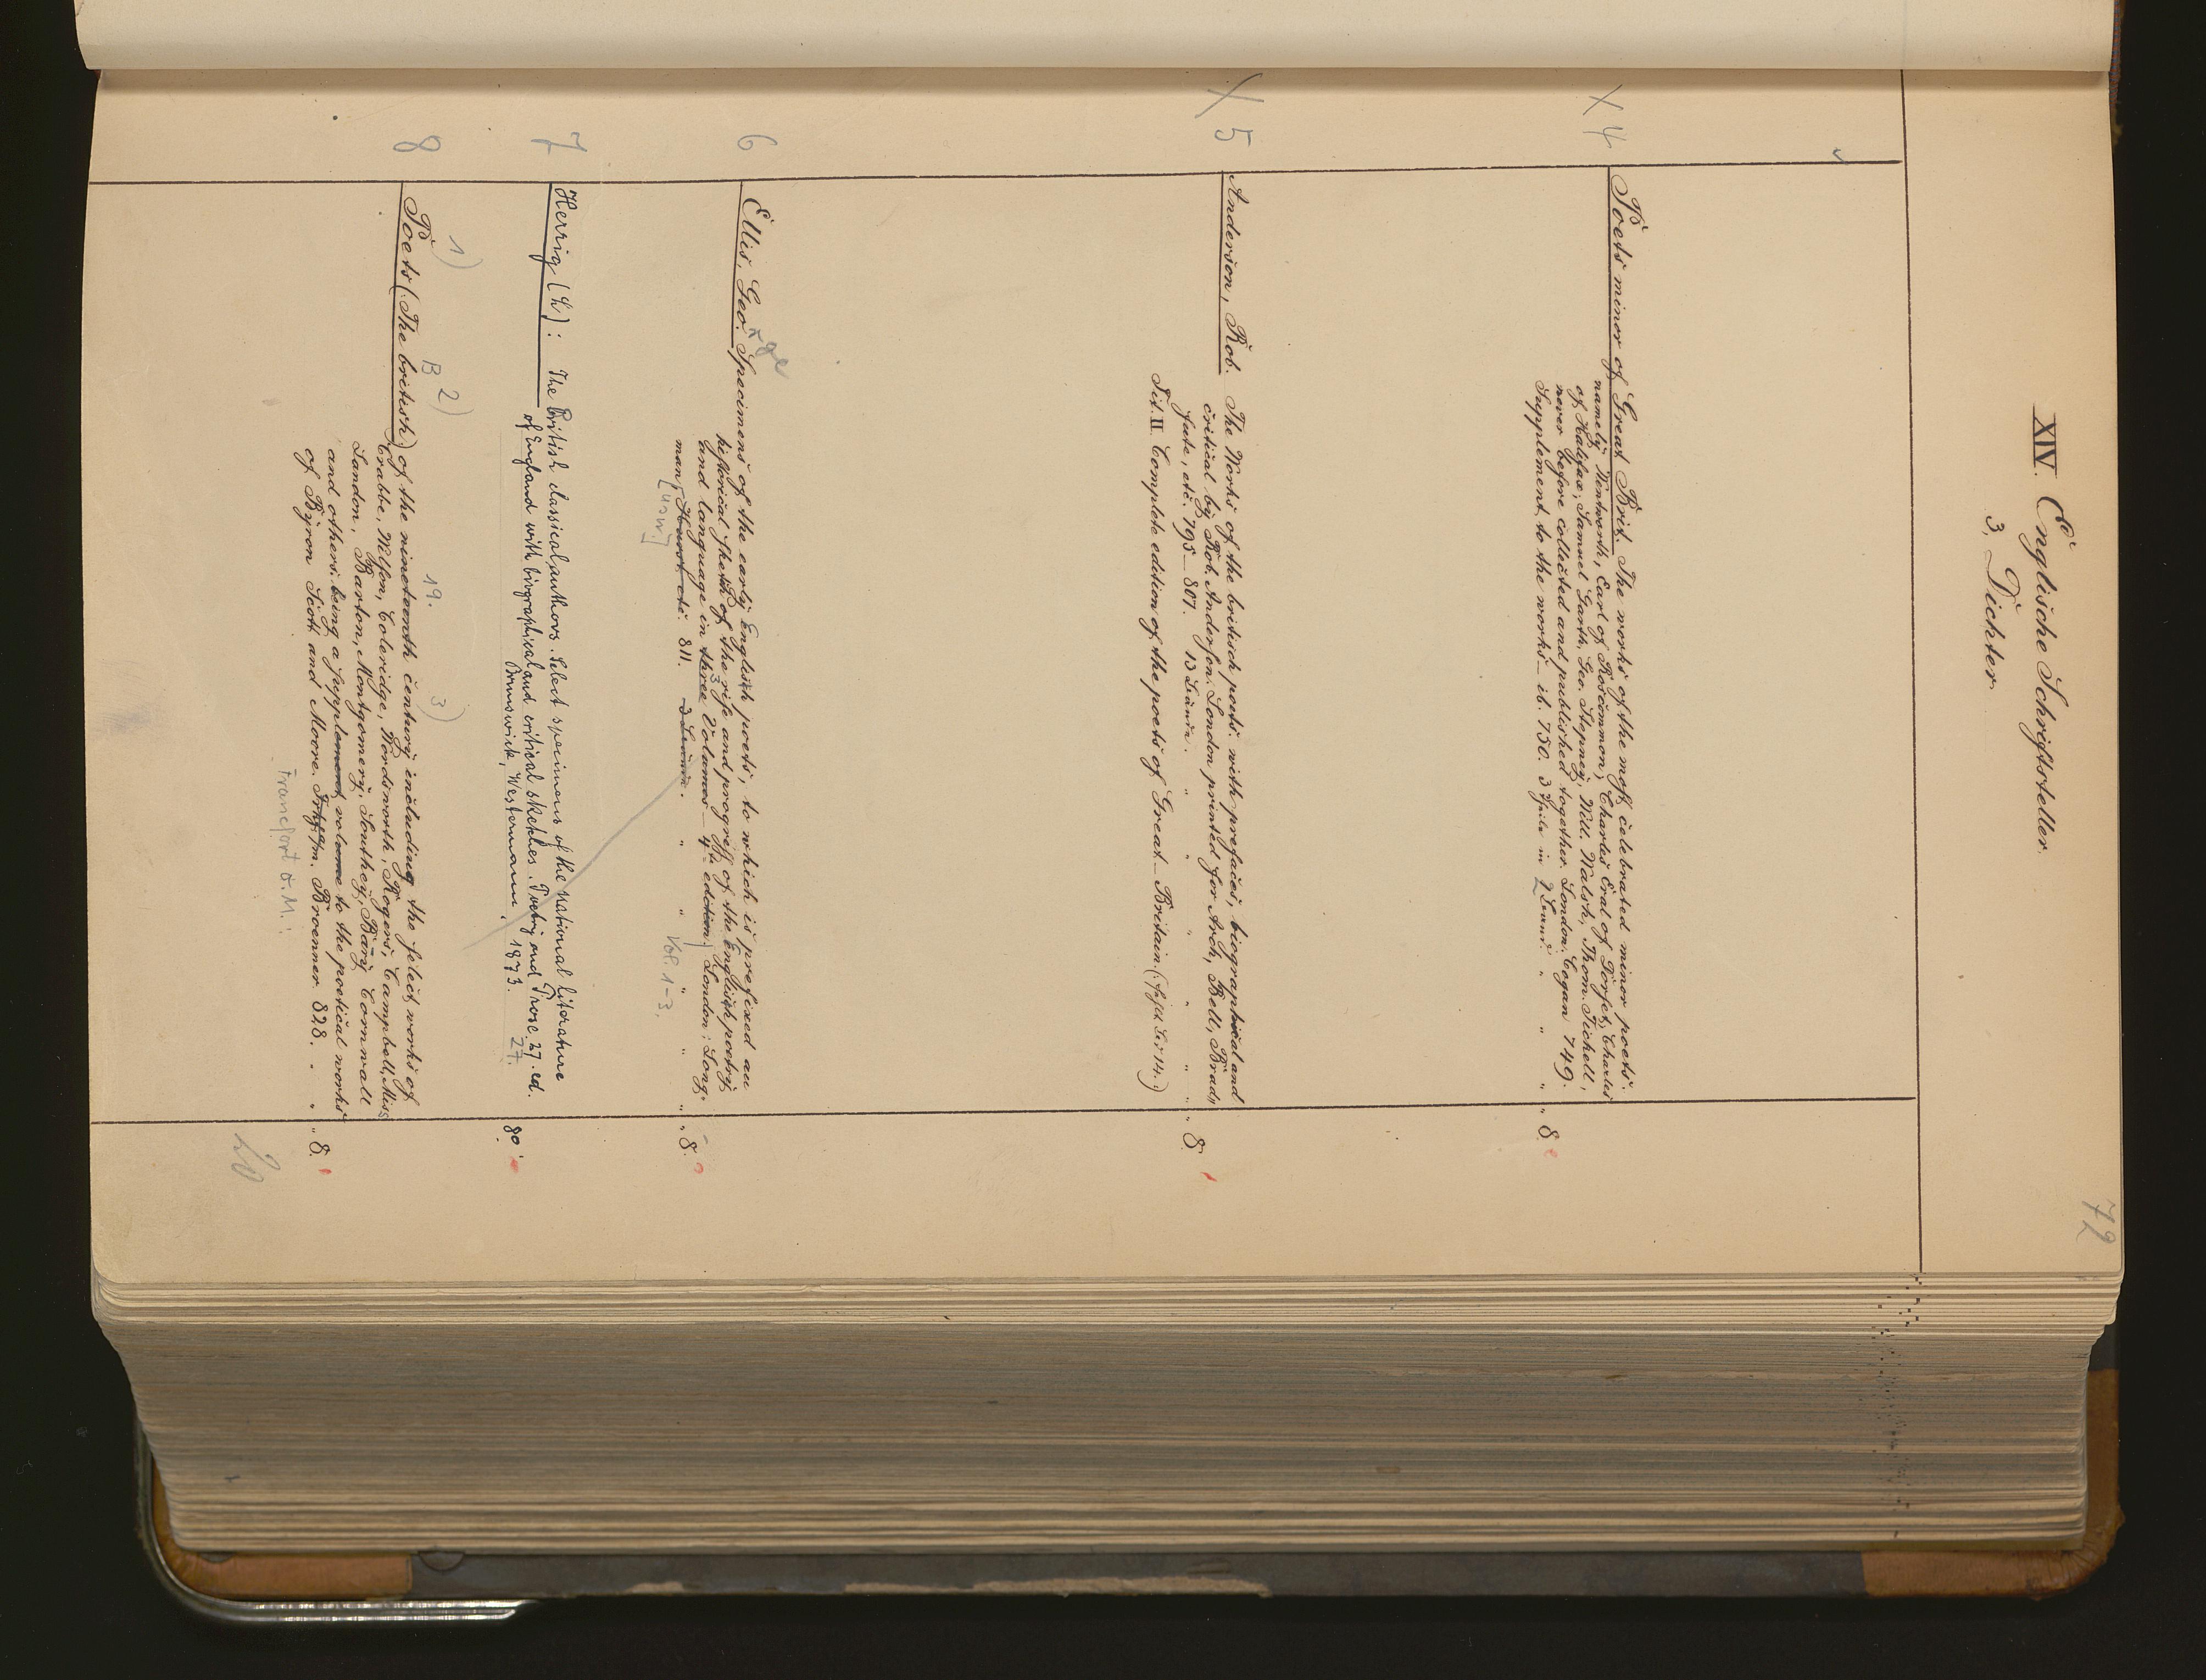 72
XIV. Englische Schriftsteller.
3, Dichter.
X 4
Poets minor of Great Brit. The works of the most celebrated minor poets:
namely Wentworth, Earl of Roscommon; Charles Eral of Dorset; Charles
of Halifax; Samuel Garth, Geo. Stepney, Will. Walsh, Thom. Tickell,
never before collected and published together. London. Cogan 749.
Supplement, to the works — ib. 750. 3 Theile in 2 Bänd. " " " " 8.
X 5
Anderson, Rob. The Works of the british poets. with prefaces, biographical and
critical by Rob. Anderson. London printed for Arch, Bell, Brad,
fute, etc. 795–807. 13 Bände. " " " " " " 8.
Tit. II. Complete edition of the poets of Great-Britain.
6
Ellis, Geo. rge Specimens of the early English poets, to which is prefixed an
historical sketch of the rise and progress of the English poetry
and language in three 3 Volumes — 4th edition) London: Long,
man, Hurst etc. 811. 3 Bände. " " " " " 8.
[usw.] Vol. 1-3.
7
Herrig (L): The British classical authors. Select specimens of the national literature
of England with biographical and critical sketches. Poetry and Prose. 27. ed.
27.
Brunswick, Westermann, 1873. 8º.
8
1) B 2) 19. 3)
Poets (The british) of the nineteenth century including the select works of
Crabbe, Wilson, Coleridge, Wordsworth, Rogers, Campbell, Miss
Landon, Barton, Montgomery, Southey, Barry Cornwall
and others: being a supplement, volume to the poetical works
of Byron Scott and Moore. Broenner 828. " " " 8.
Francfort o. M.:
20